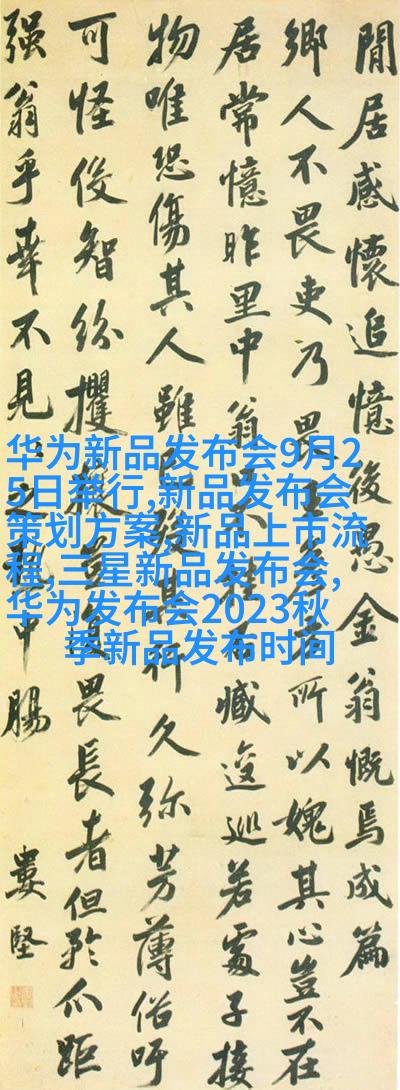 閒居感懷追憶後愚金翁慨焉成篇
鄉人不畏吏乃畏王所以媿其心豈不在
居常憶昨里中翁臧逡巡若處子接
物唯恐傷其人雖其行久弥芳薄俗吁
可怪俊智紛攫畏長者但矜爪距
強翁乎幸不見之中腸
婁堅
华为新品发布会9月2
5日举行,新品发布会
策划方案,新品上市流
程,三星新品发布会,
华为发布会2023秋
季新品发布时间